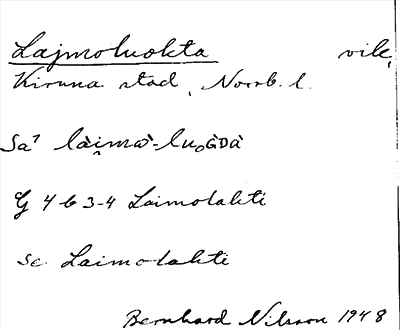 Lajmoluokta vik,
Kiruna stad, Norrb. l.
Sa⁷ là̯imɷ̀-luₒGDà
G 4 b 3-4 Laimolahti
se Laimolahti
Bernhard Nilsson 1948